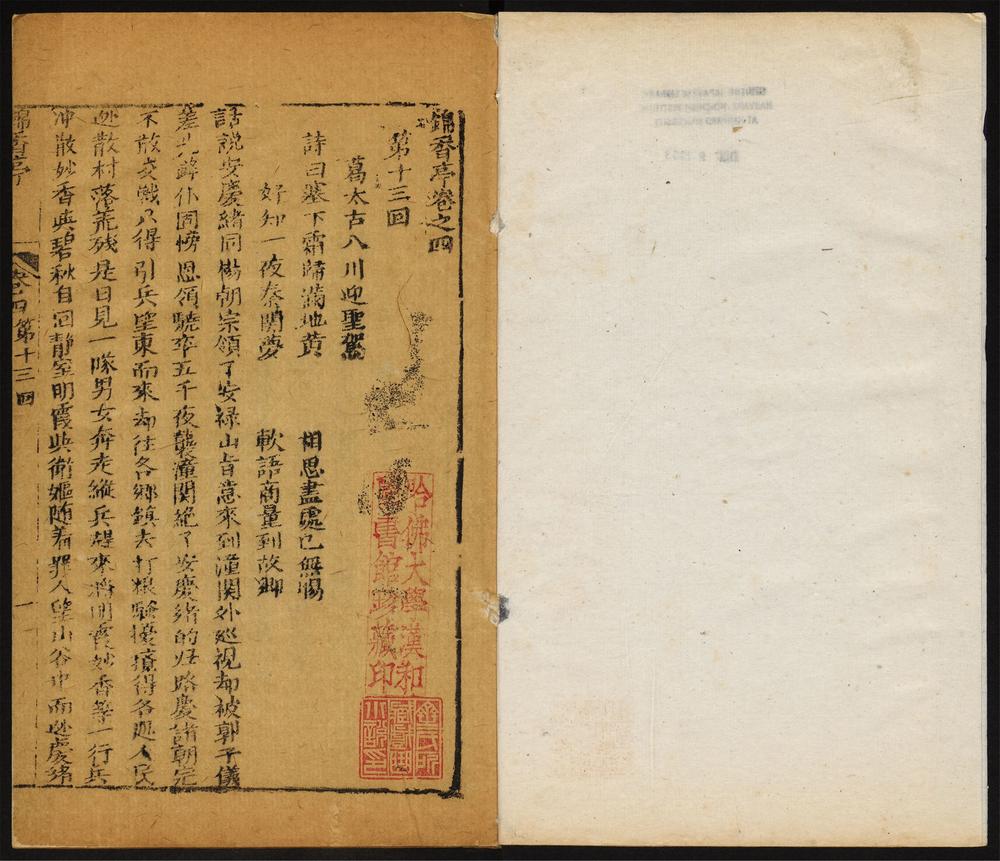 錦香亭卷之四
第十三回
葛太古八川迎聖駕
詩曰塞下霜歸滿地黃　相思盡處已無腸
好知一夜秦關夢　軟語商量到故鄉
話説安慶緒同楊朝宗領了安祿山旨意來到潼関外巡視却被郭子儀
差先鋒仆固懐恩領驍卒五千夜襲潼関絶了安慶緒的歸路慶諸朝宗
不敢交戰只得引兵望東而來却往各鄉鎮去打粮騷擾得各處人民
逃散村落荒殘是日見一隊男女奔走縱兵趕來將明霞妙香等一行兵
冲散妙香與碧秋自回靜室明霞與衛嫗随着衆人望山谷中而逃慶緒
錦香亭
卷四第十三回
一
哈佛大學漢和
圖書館珍藏印